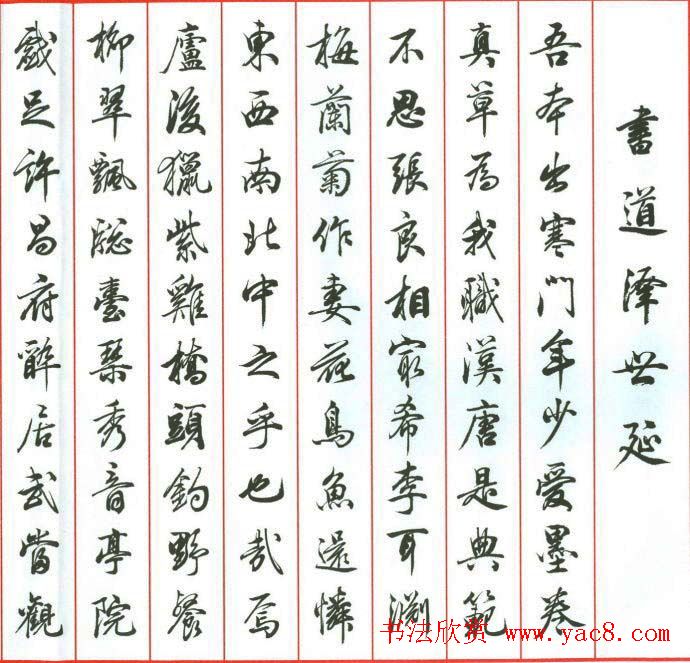 書道澤世延
吾本出寒門年少愛墨卷
真草為我職漢唐是典範
不思張良相寂希李耳淵
梅蘭菊作妻花鳥魚還憐
東西南北中之乎也哉焉
廬浚獵紫雞橋頭釣野餐
柳翠飄臺琴秀音亭院
戲足許昌府醉居武當觀
书法欣赏 www.yac8.com